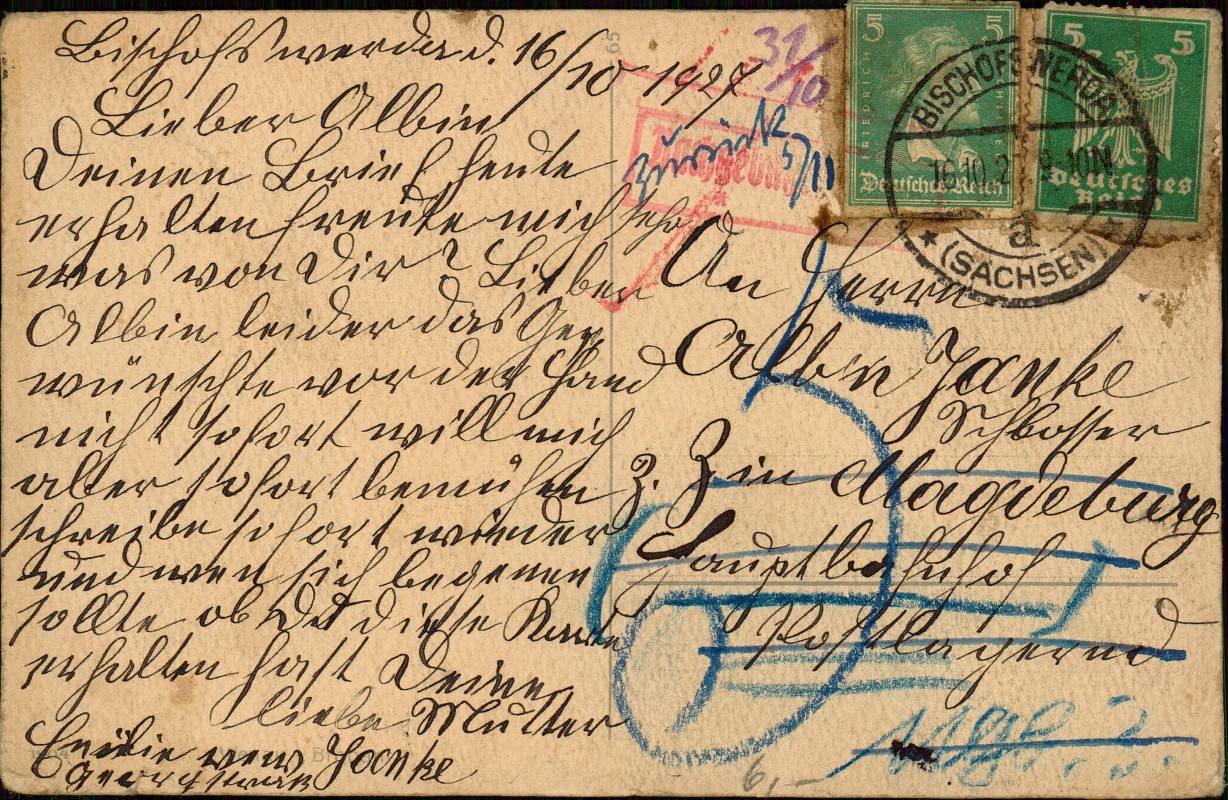 Bischofswerda d. 16/10 1927
Lieber Albin
Deinen Brief heute
erhalten freute mich sehr
was von Dir? Lieber
Albin leider das Gew
wünschte vor der Hand
nicht sofort will mich
aber sofort bemühen
schreibe sofort wieder
und wen sich begenen
sollte ob Du diese Karte
erhalten hast Deine
liebe Mutter
Emilie verw Janke
31/10
zurück
5/11
5
FRIEDRICH
Deutsches Reich
5 5
Deutsches
Reich
BISCHOFSWERDA
16.10.27
a
(SACHSEN)
An Herrn
Albin Janke
Schlosser
z. Z in Magdeburg
Hauptbahnhof
Postlagernd
6,-
65